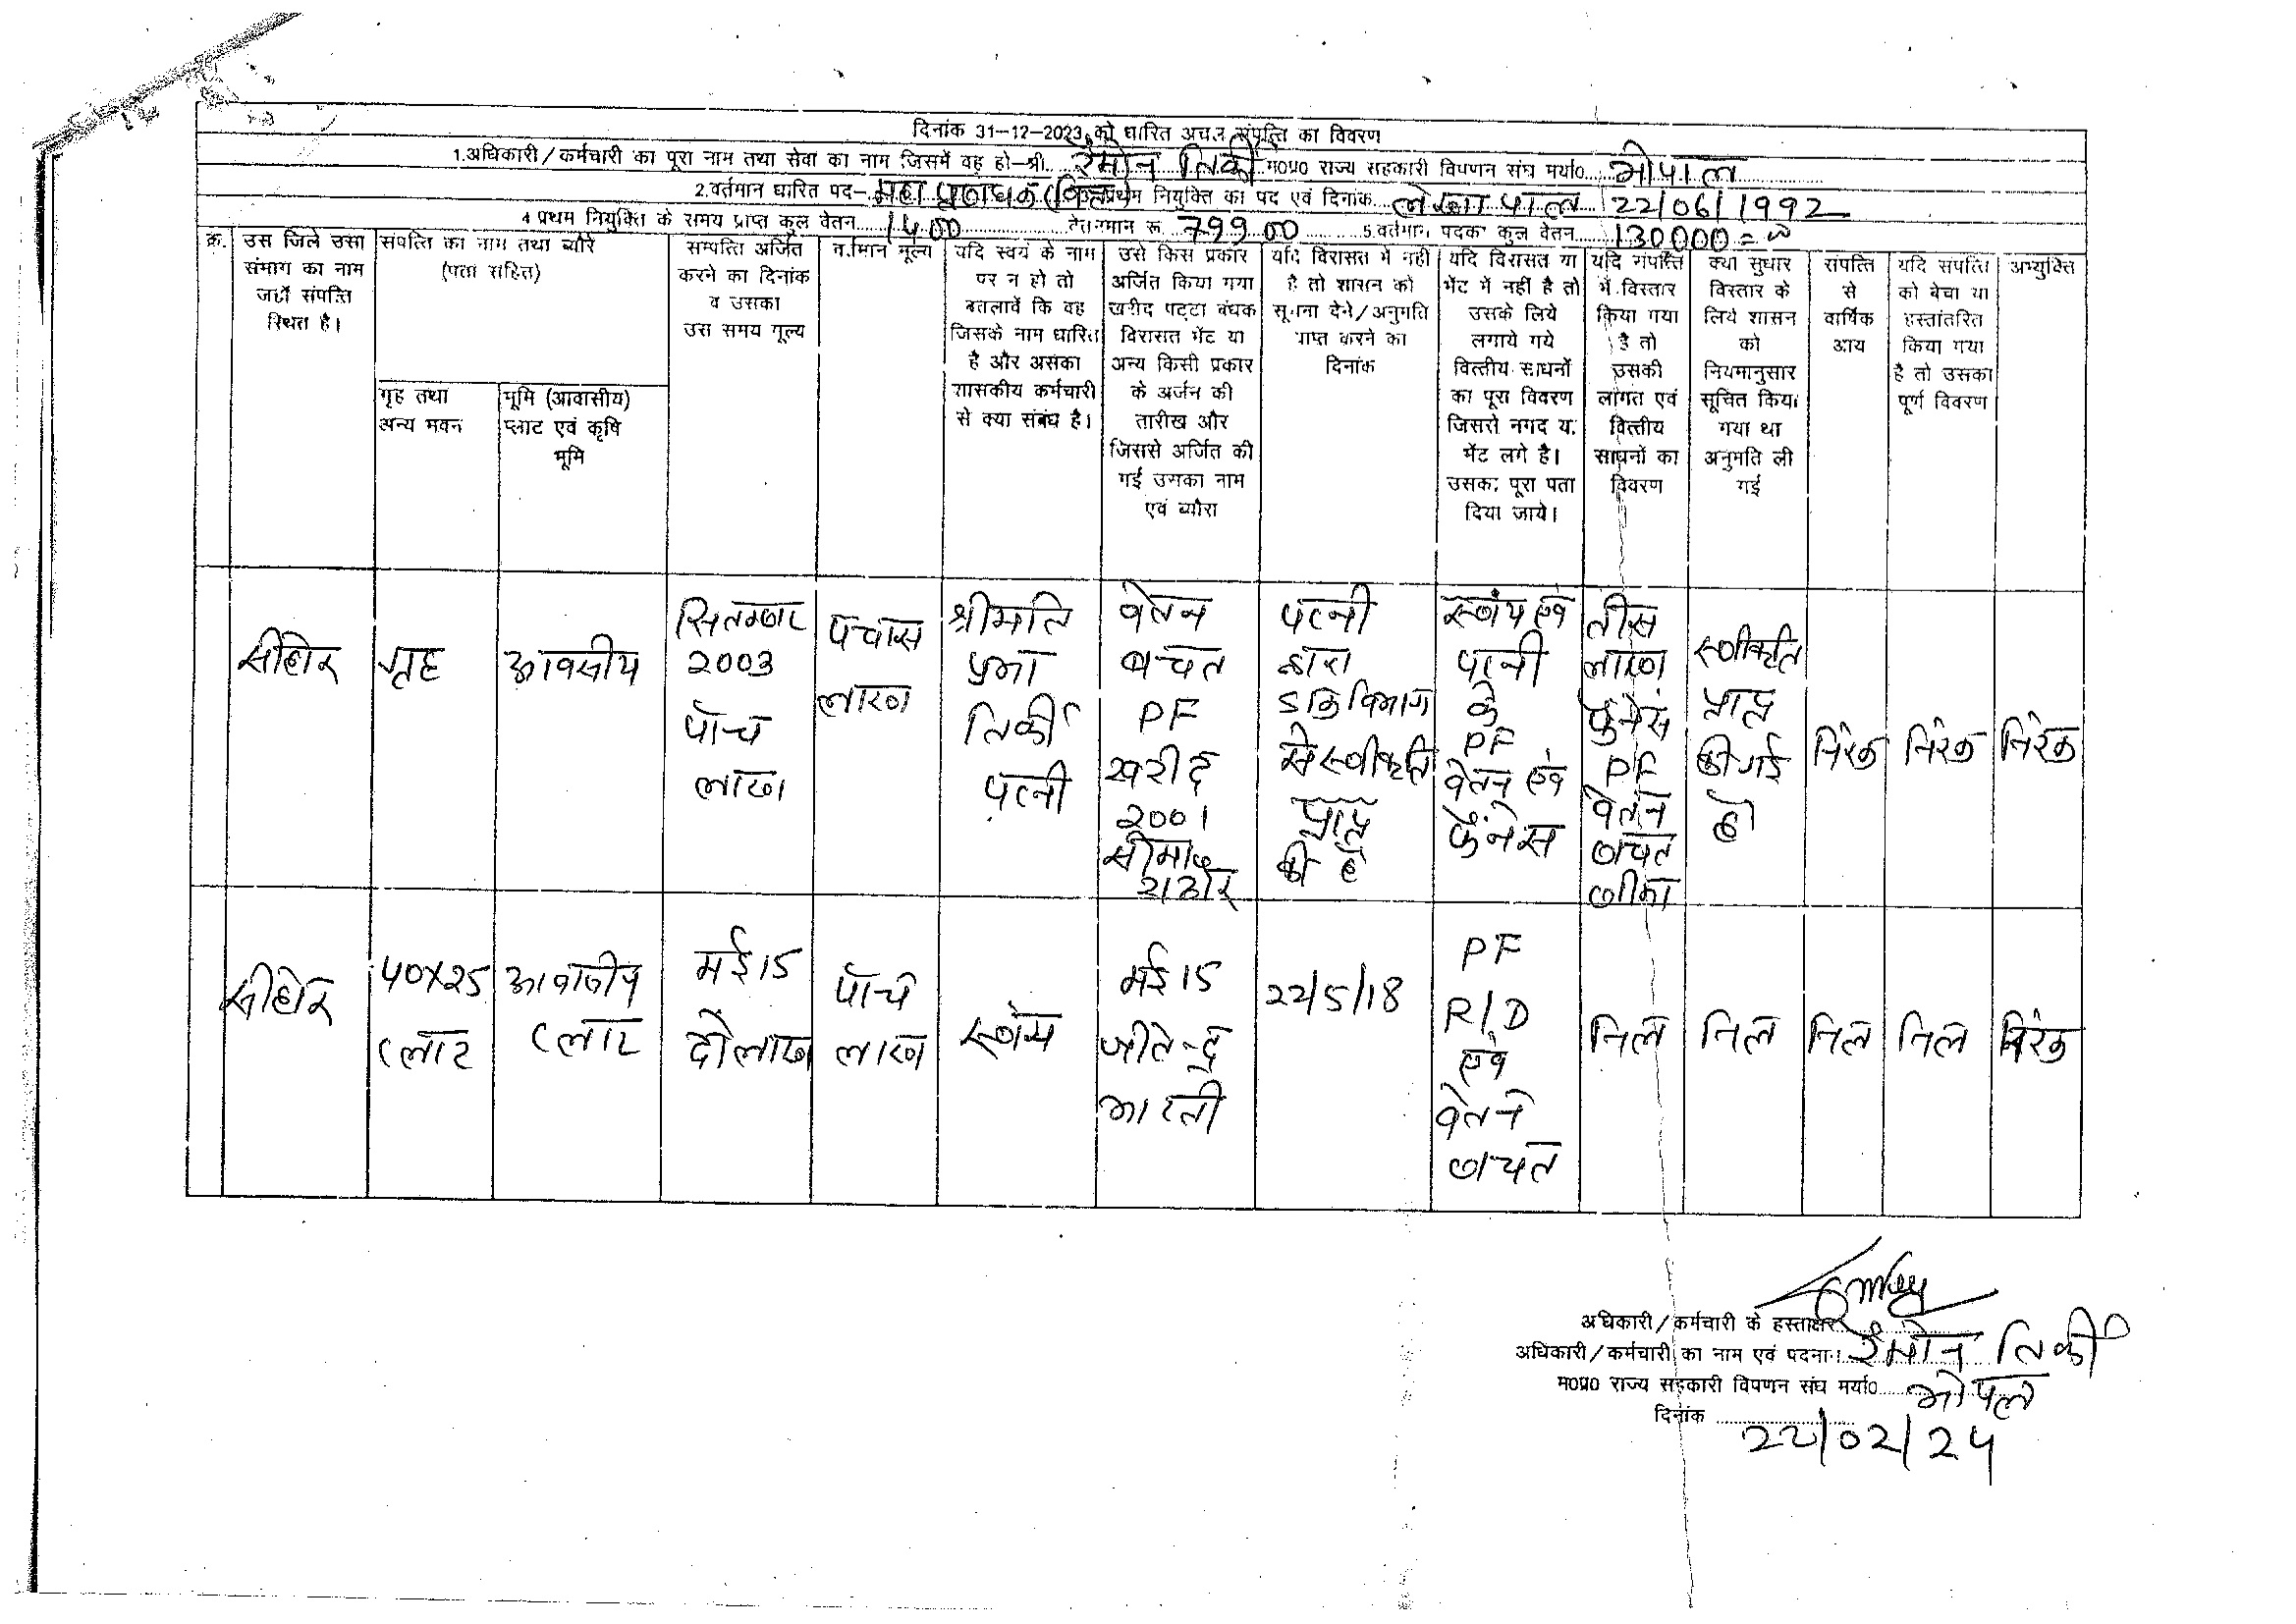 दिनांक 31-12-2023 को धारित अचल संपत्ति का विवरण
1.अधिकारी/कर्मचारी का पूरा नाम तथा सेवा का नाम जिसमें वह हो-श्री रेमोन तिर्की म0प्र0 राज्य सहकारी विपणन संघ मर्या0 भोपाल
2.वर्तमान धारित पद- महा प्रबंधक (वित्त) प्रथम नियुक्ति का पद एवं दिनांक लेखा पाल 22/06/1992
4 प्रथम नियुक्ति के समय प्राप्त कुल वेतन 1400 वेतनमान रू. 79900 5.वर्तमान पदका कुल वेतन 130000=00
क्र. उस जिले उसा संभाग का नाम जहाँ संपत्ति स्थित है।
संपत्ति का नाम तथा ब्यौरे (पता सहित)
गृह तथा अन्य भवन
भूमि (आवासीय) प्लाट एवं कृषि भूमि
सम्पत्ति अर्जित करने का दिनांक व उसका उस समय मूल्य
वर्तमान मूल्य
यदि स्वयं के नाम पर न हो तो बतलावें कि वह जिसके नाम धारित है और असका शासकीय कर्मचारी से क्या संबंध है।
उसे किस प्रकार अर्जित किया गया खरीद पट्टा बंधक विरासत भेंट या अन्य किसी प्रकार के अर्जन की तारीख और जिससे अर्जित की गई उसका नाम एवं ब्यौरा
यदि विरासत में नही है तो शासन को सूचना देने/अनुमति प्राप्त करने का दिनांक
यदि विरासत या भेंट में नहीं है तो उसके लिये लगाये गये वित्तीय साधनों का पूरा विवरण जिससे नगद या भेंट लगे है। उसका पूरा पता दिया जाये।
यदि संपत्ति में विस्तार किया गया है तो उसकी लागत एवं वित्तीय साधनों का विवरण
क्या सुधार विस्तार के लिये शासन को नियमानुसार सूचित किया गया था अनुमति ली गई
संपत्ति से वार्षिक आय
यदि संपत्ति को बेचा या हस्तांतरित किया गया है तो उसका पूर्ण विवरण
अभ्युक्ति
सीहोर
गृह
आवसीय
सितम्बर 2003 पाँच लाख
पचास लाख
श्रीमति प्रभा तिर्की पत्नी
वेतन बचत PF खरीद 2001 सीमा राठौर
पत्नी द्वारा विभाग से स्वीकृति प्राप्त की है
स्वंय एवं पत्नी के PF वेतन एवं फेनेंस
तीस लाख फेनेंस PF वेतन बचत बीमा
स्वीकृति प्राप्त की गई है
निरंक
निरंक
निरंक
सीहोर
40X25 प्लाट
आवासीय प्लाट
मई 15 दो लाख
पाँच लाख
स्वंय
मई 15 जीतेन्द्र भारती
22/5/18
PF R/D एवं वेतन बचत
निल
निल
निल
निल
निरंक
अधिकारी/कर्मचारी के हस्ताक्षर
अधिकारी/कर्मचारी का नाम एवं पदनाम रेमोन तिर्की
म0प्र0 राज्य सहकारी विपणन संघ मर्या0 भोपाल
दिनांक 22/02/24